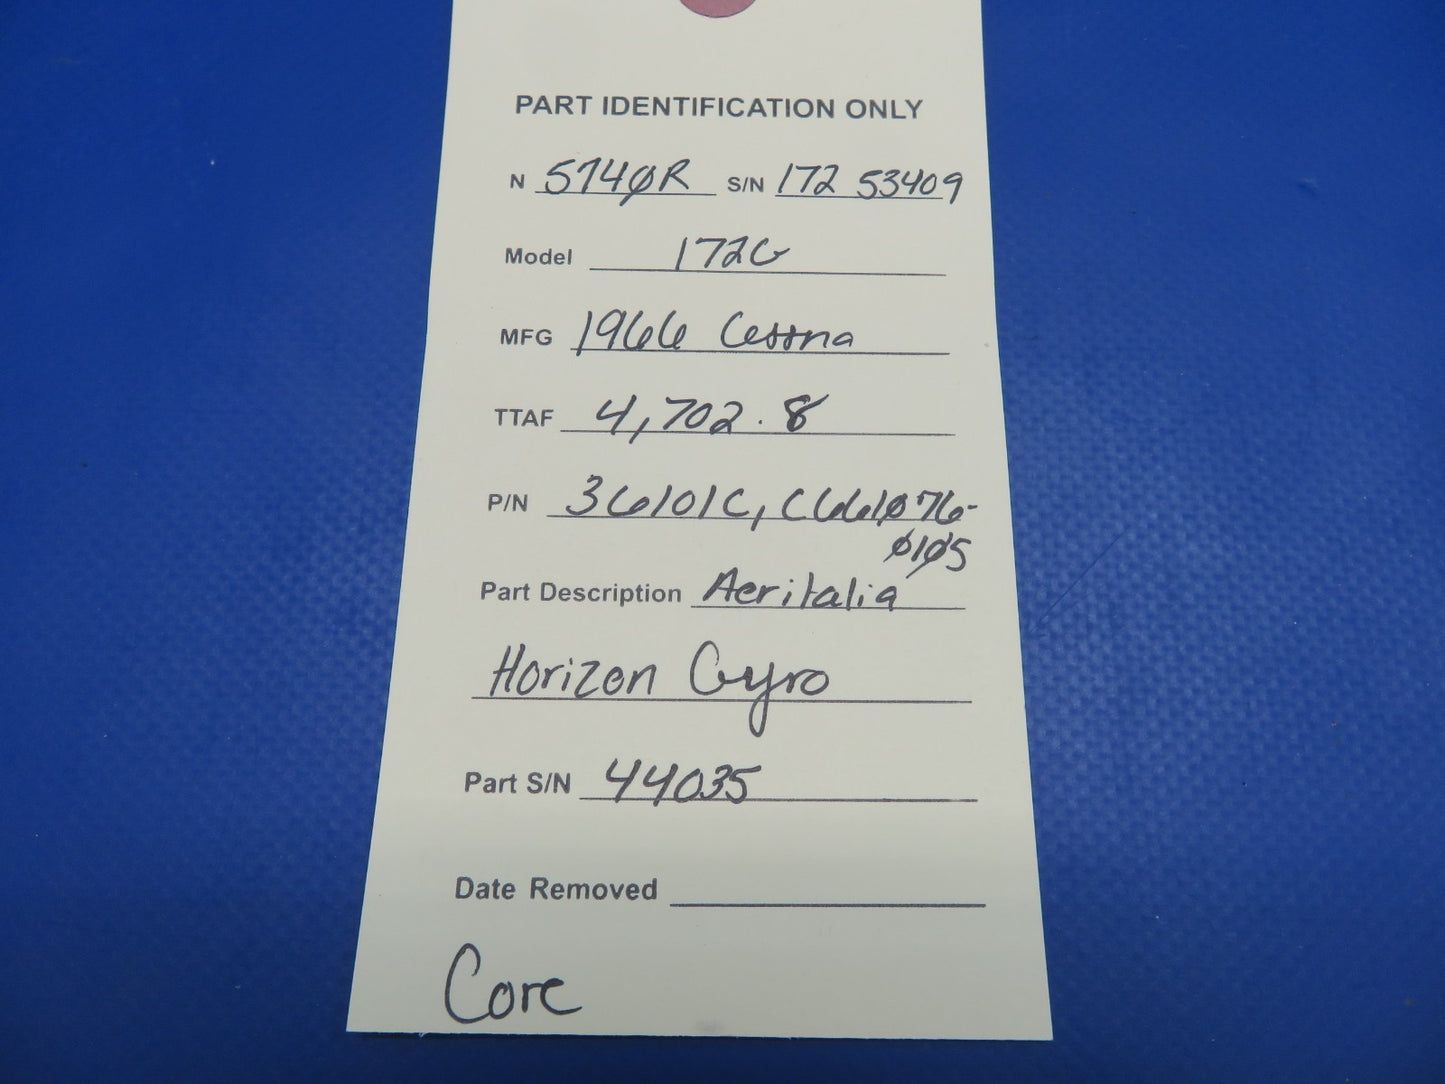 PART IDENTIFICATION ONLY
N 5740R S/N 172 53409
Model 172G
MFG 1966 Cessna
TTAF 4,702.8
P/N 36101C, C661076-
0105
Part Description Aeritalia
Horizon Gyro
Part S/N 44035
Date Removed
Core